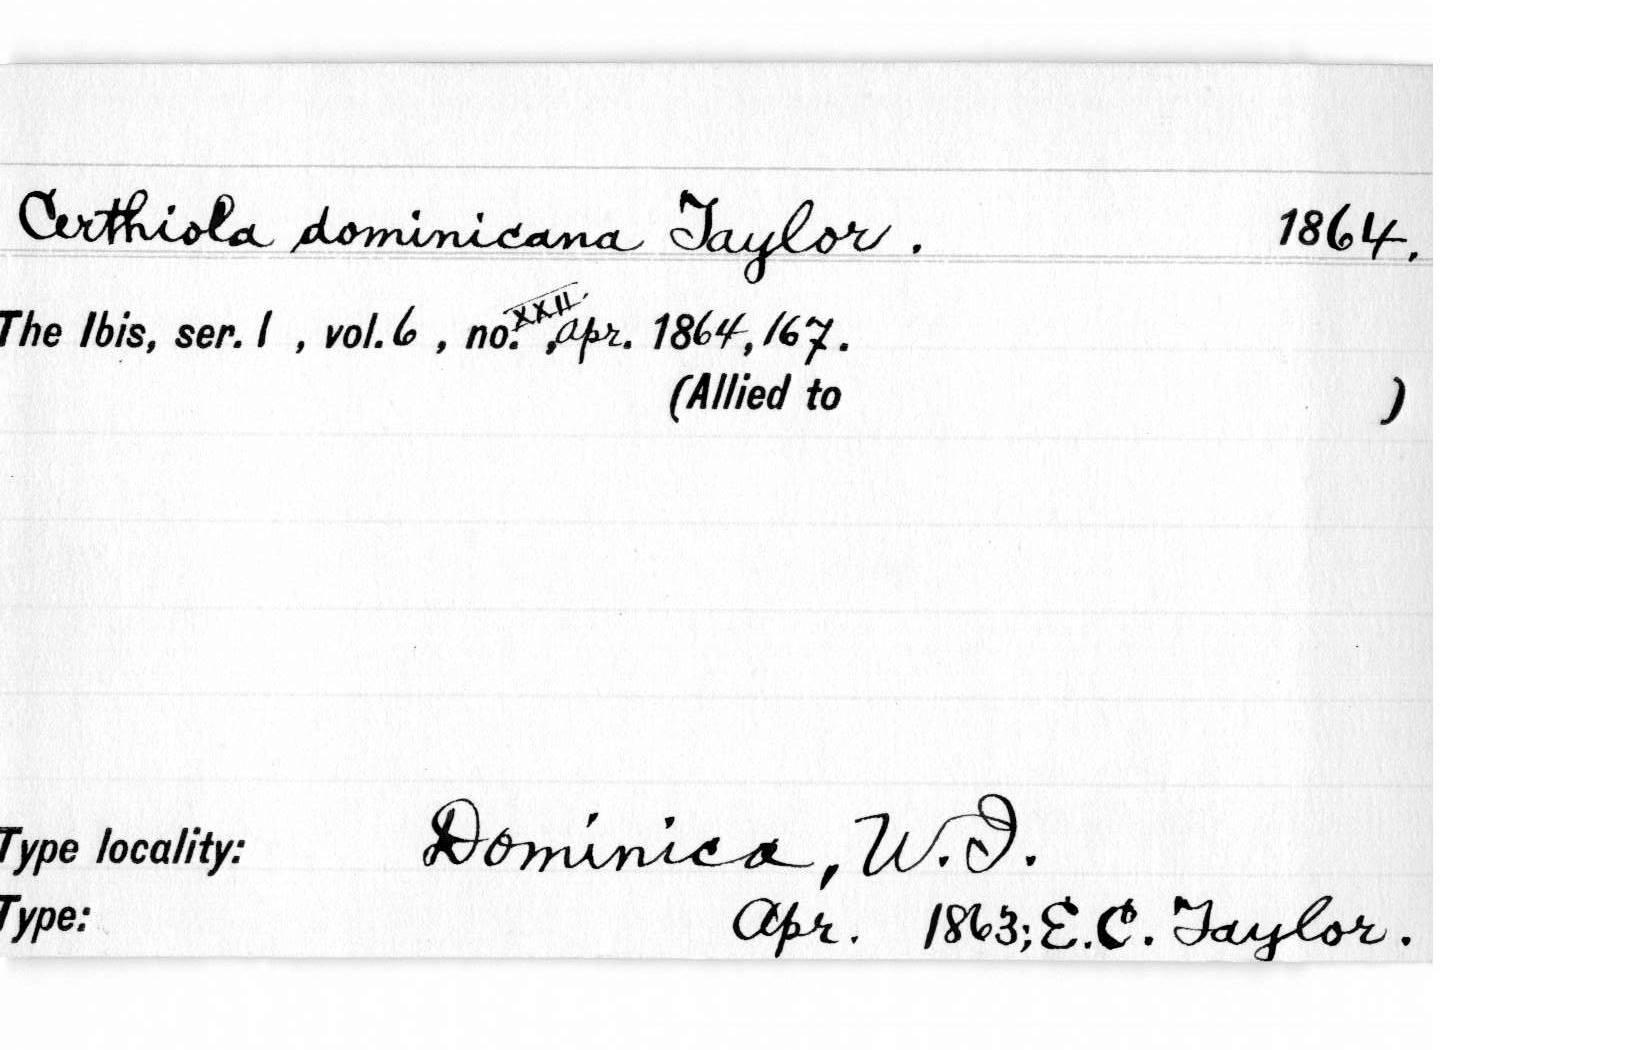 Certhiola dominicana Taylor. 1864.
The Ibis, ser. 1, vol. 6, no. XXII, Apr. 1864, 167.
(Allied to )
Type locality: Dominica, W.I.
Type: Apr. 1863; E.C. Taylor.